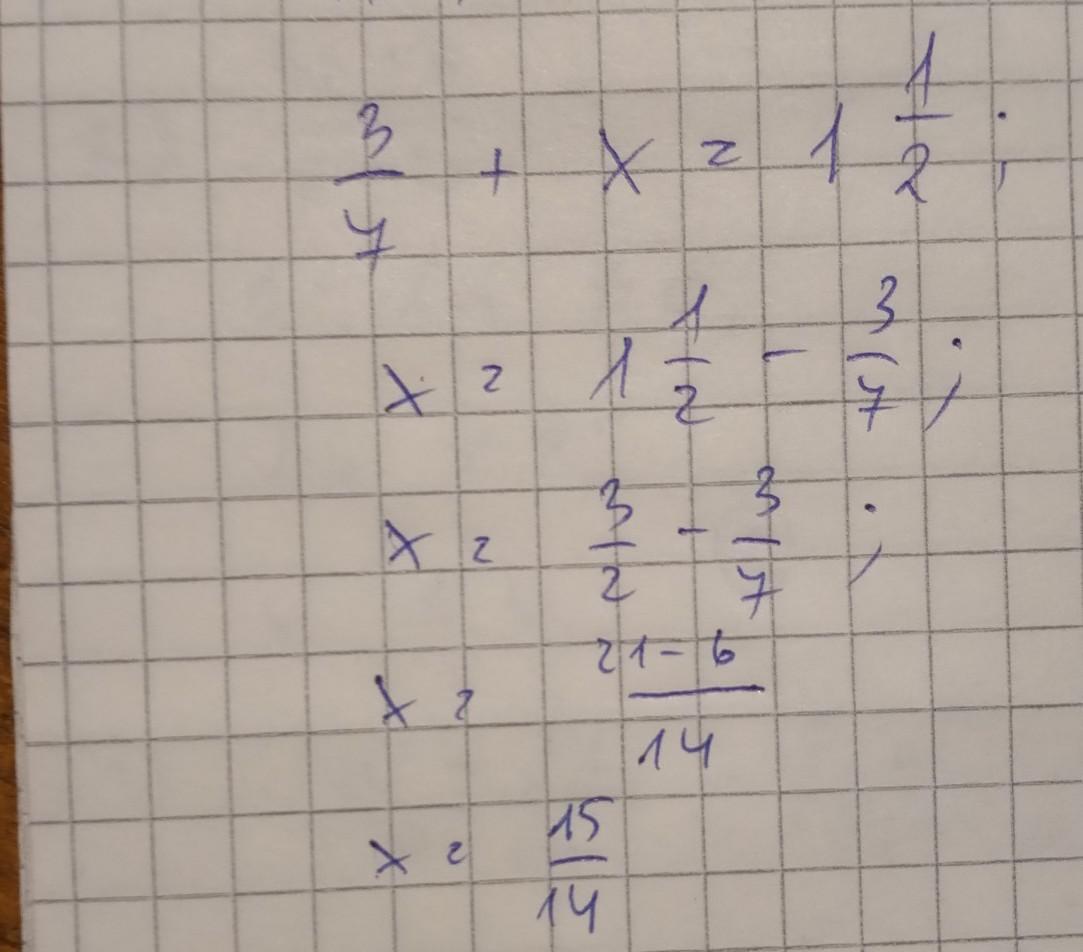 3/7 + x = 1 1/2 ;
x = 1 1/2 - 3/7 ;
x = 3/2 - 3/7 ;
x = 21-6/14
x = 15/14